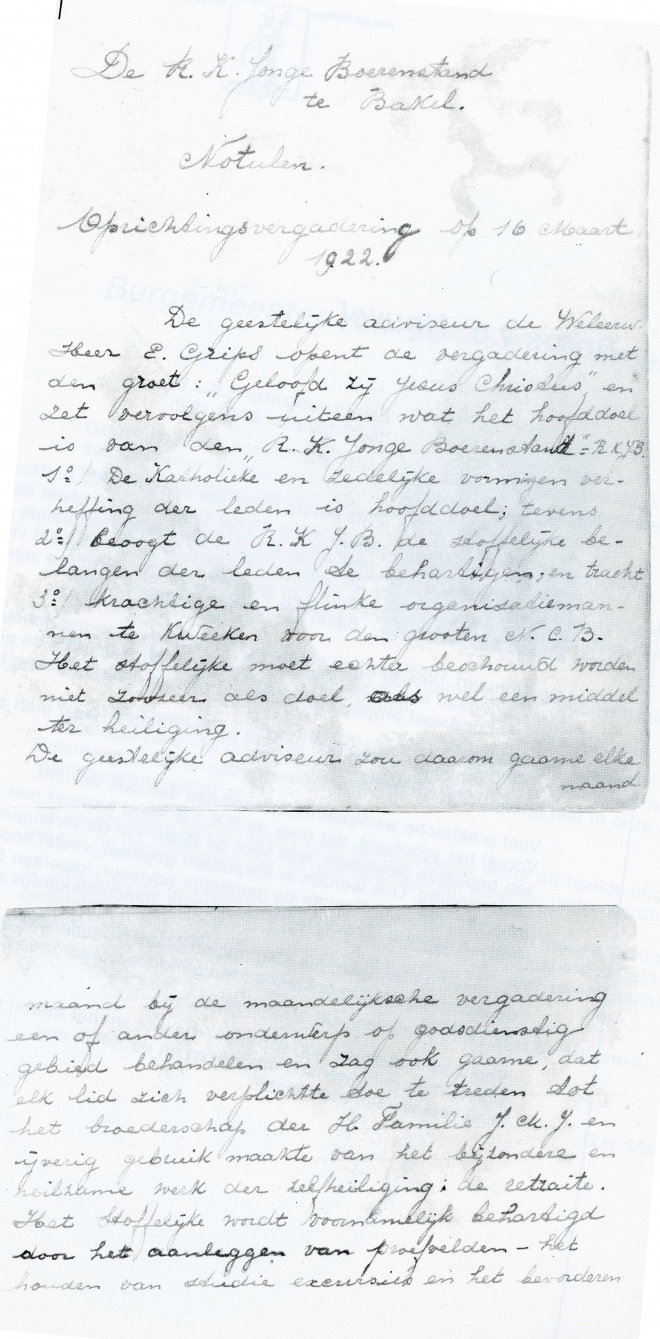 De R. K. Jonge Boerenstand
te Bakel.
Notulen.
Oprichtingsvergadering op 16 Maart
1922.
De geestelijke adviseur de Weleerw.
Heer E. Grips opent de vergadering met
den groet: „Geloofd zij Jesus Christus" en
zet vervolgens uiteen wat het hoofddoel
is van den „R. K. Jonge Boerenstand" = R.K.J.B.
1º/ De Katholieke en zedelijke vormingen ver-
heffing der leden is hoofddoel; tevens
2º/ beoogt de R. K J. B. de stoffelijke be-
langen der leden te behartigen; en tracht
3º/ krachtige en flinke organisatieman-
nen te kweeken voor den grooten N. C. B.
Het stoffelijke moet echter beschouwd worden
niet zoozeer als doel, als wel een middel
ter heiliging.
De geestelijke adviseur zou daarom gaarne elke
maand
maand bij de maandelijksche vergadering
een of ander onderwerp op godsdienstig
gebied behandelen en zag ook gaarne, dat
elk lid zich verplichtte toe te treden tot
het broederschap der H. Familie J. M. J. en
ijverig gebruik maakte van het bijzondere en
heilzame werk der zelfheiliging: de retraite.
Het stoffelijke wordt voornamelijk behartigd
door het aanleggen van proefvelden – het
houden van studie excursies en het bevorderen